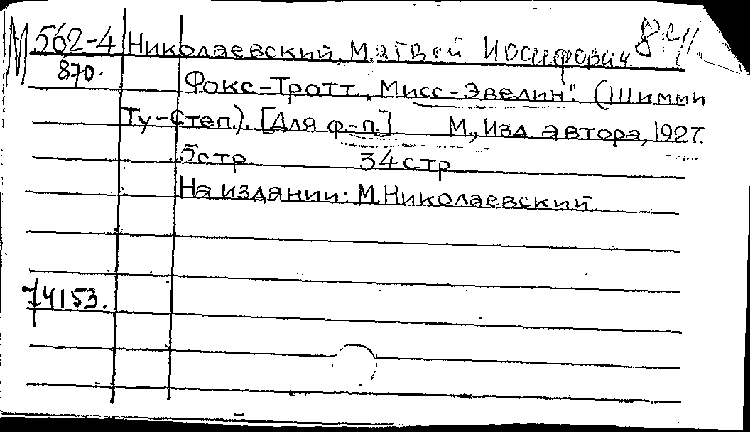 М 562-4 Николаевский, Матвей Иосифович
870. Фокс-Тротт „Мисс-Эвелин". (Шимми
Ту-Степ). [Для ф.-п.] М., Изд. автора, 1927.
5стр 34стр
На издании: М.Николаевский
74153.